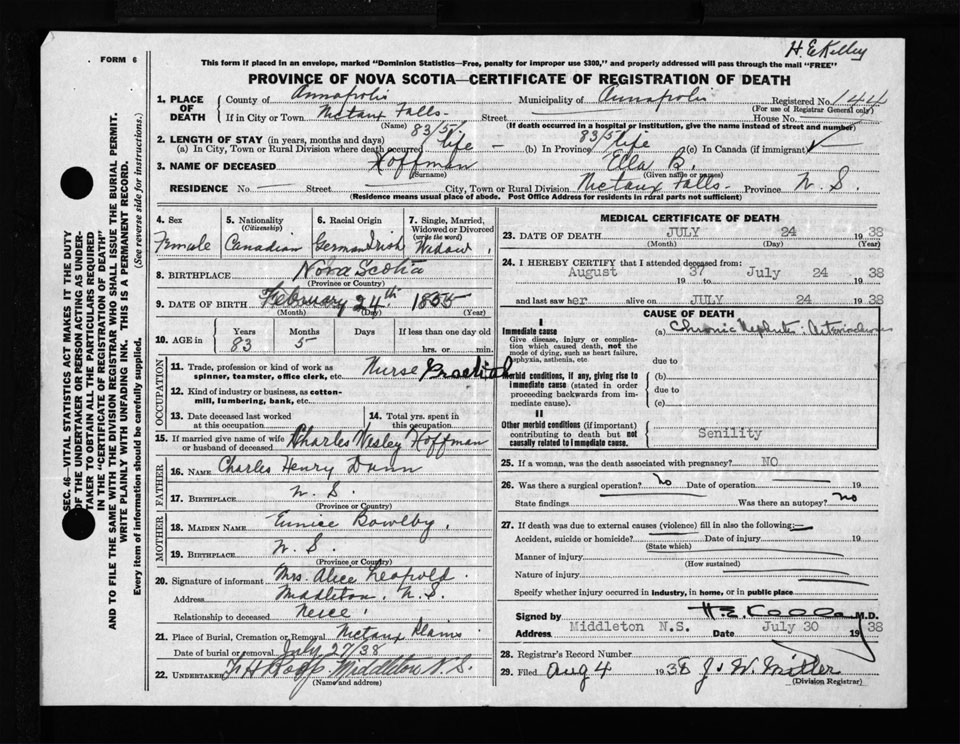 H. E. Kelley
FORM 6
This form if placed in an envelope, marked "Dominion Statistics—Free, penalty for improper use $300," and properly addressed will pass through the mail "FREE"
PROVINCE OF NOVA SCOTIA—CERTIFICATE OF REGISTRATION OF DEATH
SEC. 46—VITAL STATISTICS ACT MAKES IT THE DUTY
OF THE UNDERTAKER OR PERSON ACTING AS UNDER-
TAKER TO OBTAIN ALL THE PARTICULARS REQUIRED
IN THE "CERTIFICATE OF REGISTRATION OF DEATH"
AND TO FILE THE SAME WITH THE DIVISION REGISTRAR WHO SHALL ISSUE THE BURIAL PERMIT.
WRITE PLAINLY WITH UNFADING INK. THIS IS A PERMANENT RECORD.
Every item of information should be carefully supplied. (See reverse side for instructions.)
1. PLACE OF DEATH County of Annapolis Municipality of Annapolis Registered No. 144
(For use of Registrar General only)
If in City or Town Nictaux Falls Street House No.
(Name) (If death occurred in a hospital or institution, give the name instead of street and number)
2. LENGTH OF STAY (in years, months and days)
(a) In City, Town or Rural Division where death occurred 83/5/ life (b) In Province 83/5/ life (c) In Canada (if immigrant)
3. NAME OF DECEASED Hoffman Ella B.
(Surname) (Given name or names)
RESIDENCE No. — Street City, Town or Rural Division Nictaux Falls Province N. S.
(Residence means usual place of abode. Post Office Address for residents in rural parts not sufficient)
4. Sex
Female
5. Nationality
(Citizenship)
Canadian
6. Racial Origin
German Irish
7. Single, Married, Widowed or Divorced
(write the word)
Widow
8. BIRTHPLACE Nova Scotia
(Province or Country)
9. DATE OF BIRTH February 24th 1855
(Month) (Day) (Year)
10. AGE in Years Months Days If less than one day old
83 5 hrs. or min.
OCCUPATION
11. Trade, profession or kind of work as
spinner, teamster, office clerk, etc. Nurse Practical
12. Kind of industry or business, as cotton-
mill, lumbering, bank, etc.
13. Date deceased last worked
at this occupation
14. Total yrs. spent in
this occupation
15. If married give name of wife
or husband of deceased Charles Wesley Hoffman
FATHER
16. NAME Charles Henry Dunn
17. BIRTHPLACE N. S.
(Province or Country)
MOTHER
18. MAIDEN NAME Eunice Bowlby
19. BIRTHPLACE N. S.
(Province or Country)
20. Signature of informant Mrs. Alice Leopold
Address Middleton, N. S.
Relationship to deceased Neice
21. Place of Burial, Cremation or Removal Nictaux Plains
Date of burial or removal July 27/38
22. UNDERTAKER Middleton N. S.
(Name and address)
MEDICAL CERTIFICATE OF DEATH
23. DATE OF DEATH JULY 24 1938
(Month) (Day) (Year)
24. I HEREBY CERTIFY that I attended deceased from:
August 1937 to July 24 1938
and last saw her alive on JULY 24 1938
CAUSE OF DEATH
I
Immediate cause
Give disease, injury or complica-
tion which caused death, not the
mode of dying, such as heart failure,
asphyxia, asthenia, etc
(a) Chronic Nephritis
due to
Morbid conditions, if any, giving rise to
immediate cause (stated in order
proceeding backwards from im-
mediate cause).
(b)
due to
(c)
II
Other morbid conditions (if important)
contributing to death but not
causally related to immediate cause.
Senility
25. If a woman, was the death associated with pregnancy? NO
26. Was there a surgical operation? No Date of operation 19
State findings Was there an autopsy? No
27. If death was due to external causes (violence) fill in also the following:—
Accident, suicide or homicide? Date of injury 19
(State which)
Manner of injury
(How sustained)
Nature of injury
Specify whether injury occurred in industry, in home, or in public place
Signed by H. E. Kelley M.D.
Address Middleton N.S. Date July 30 1938
28. Registrar's Record Number
29. Filed Aug 4 1938 J. W. Miller
(Division Registrar)